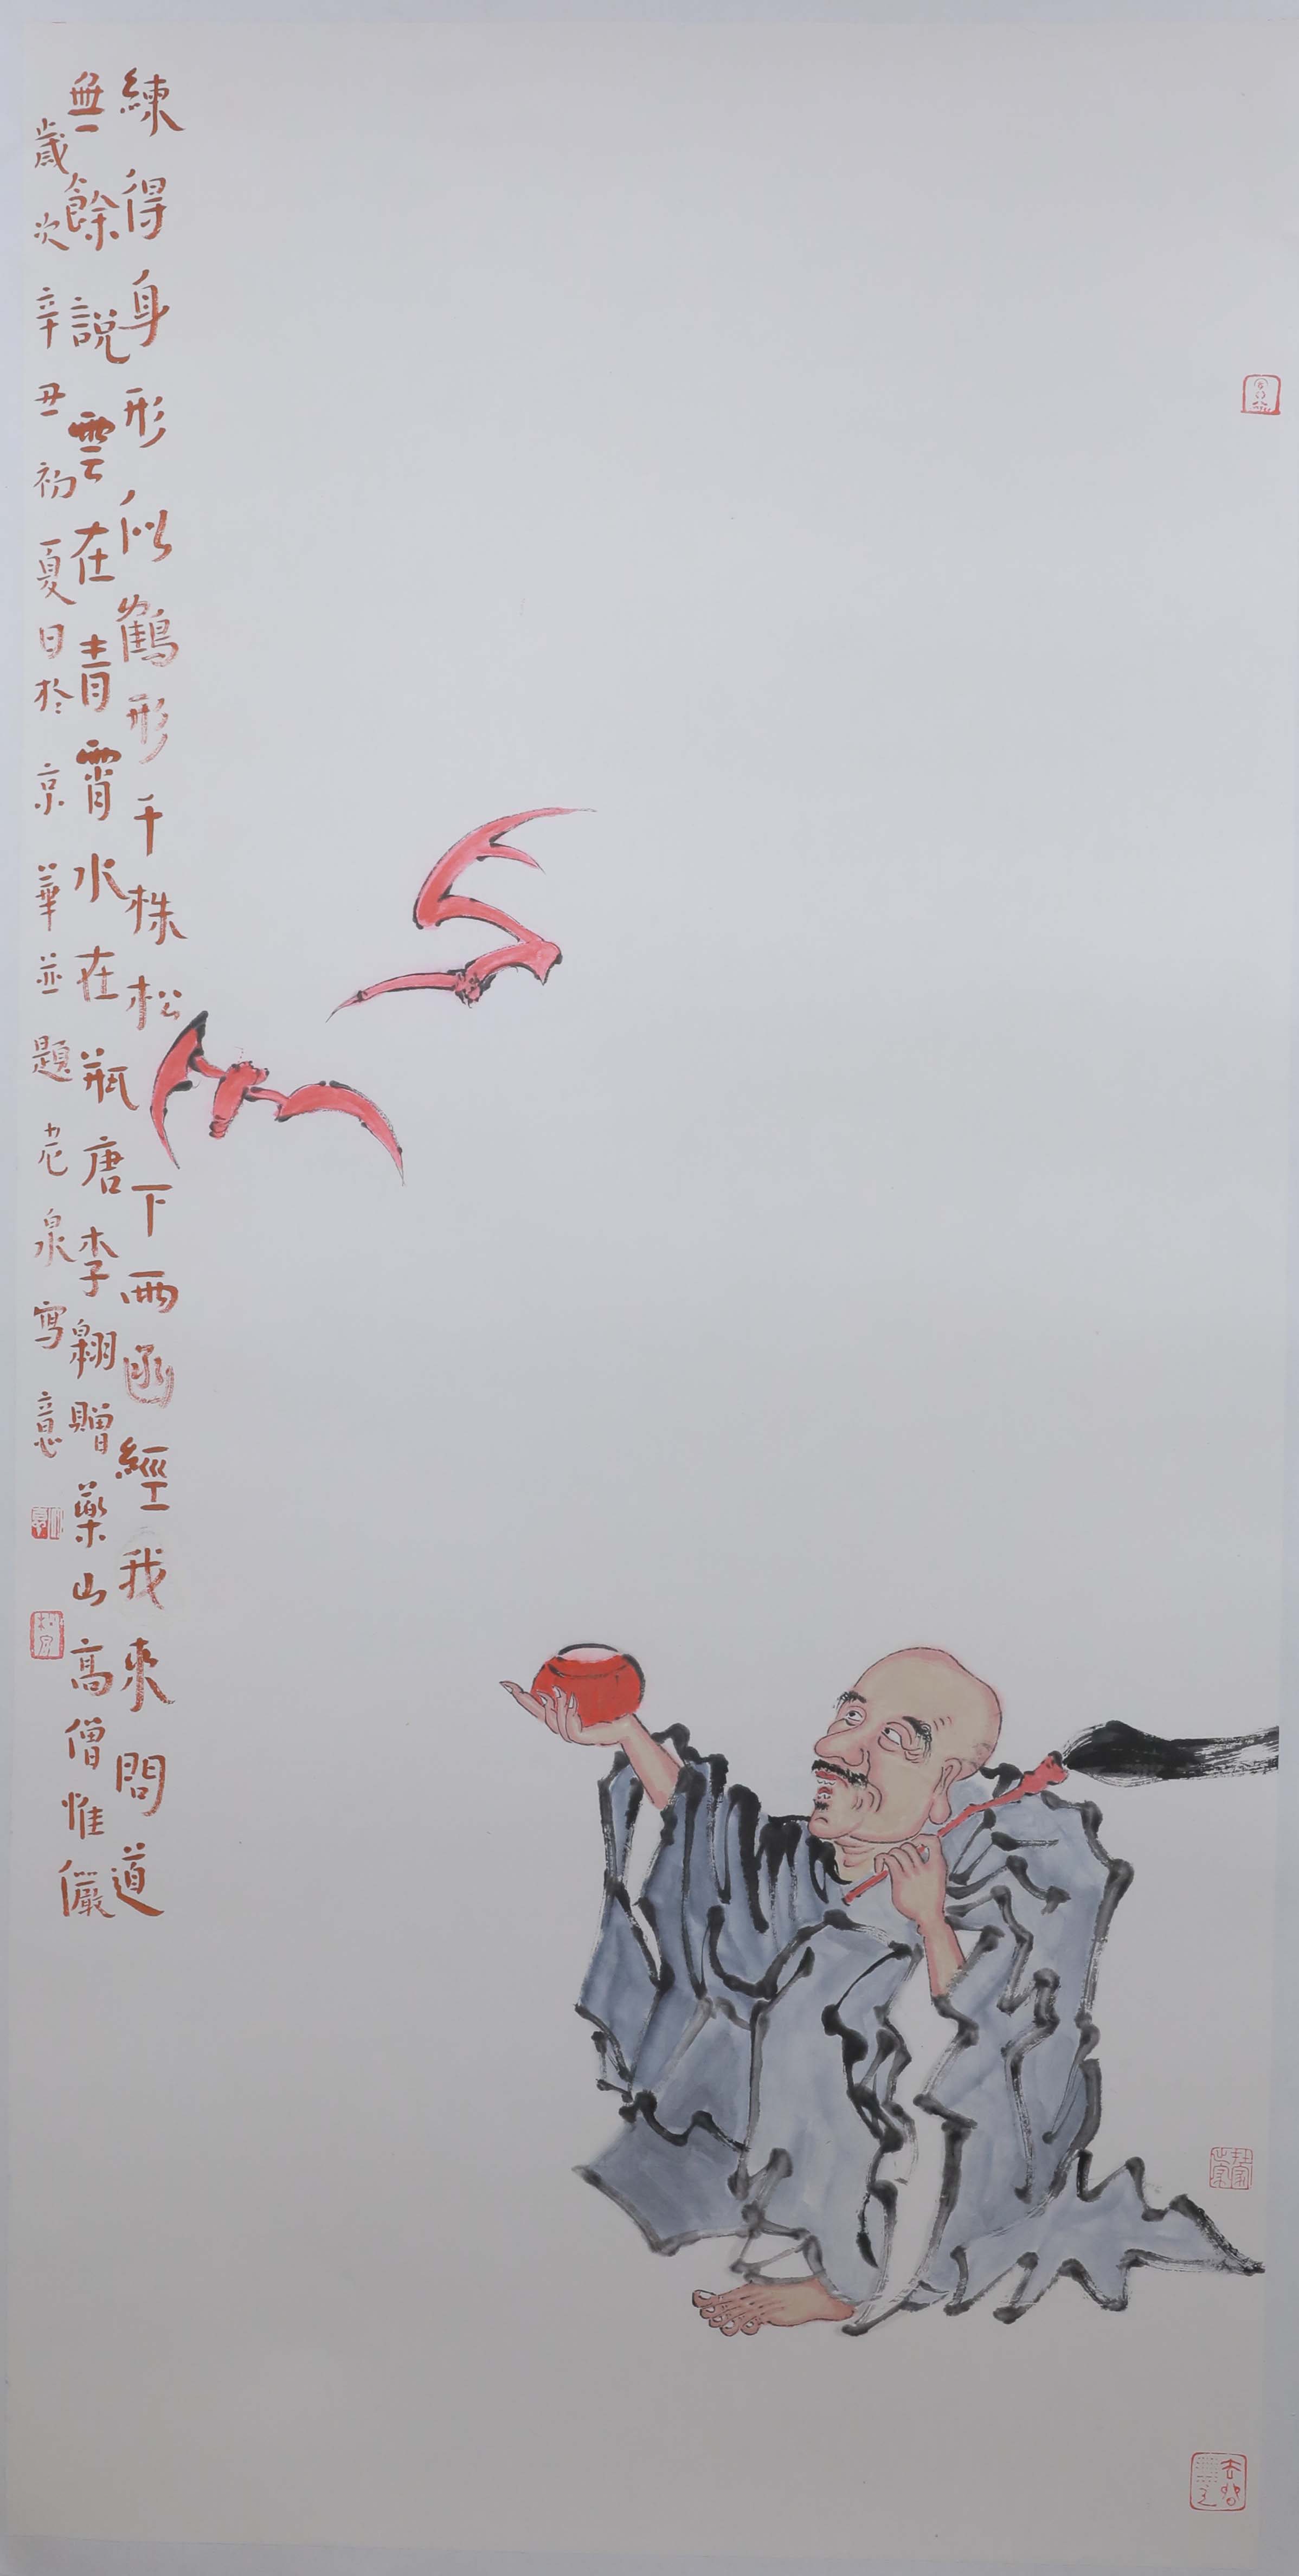 練得身形似鶴形千株松下兩函經我來問道
無餘說雲在青霄水在瓶唐李翱贈藥山高僧惟儼
歲次辛丑初夏日於京華並題老泉寫意